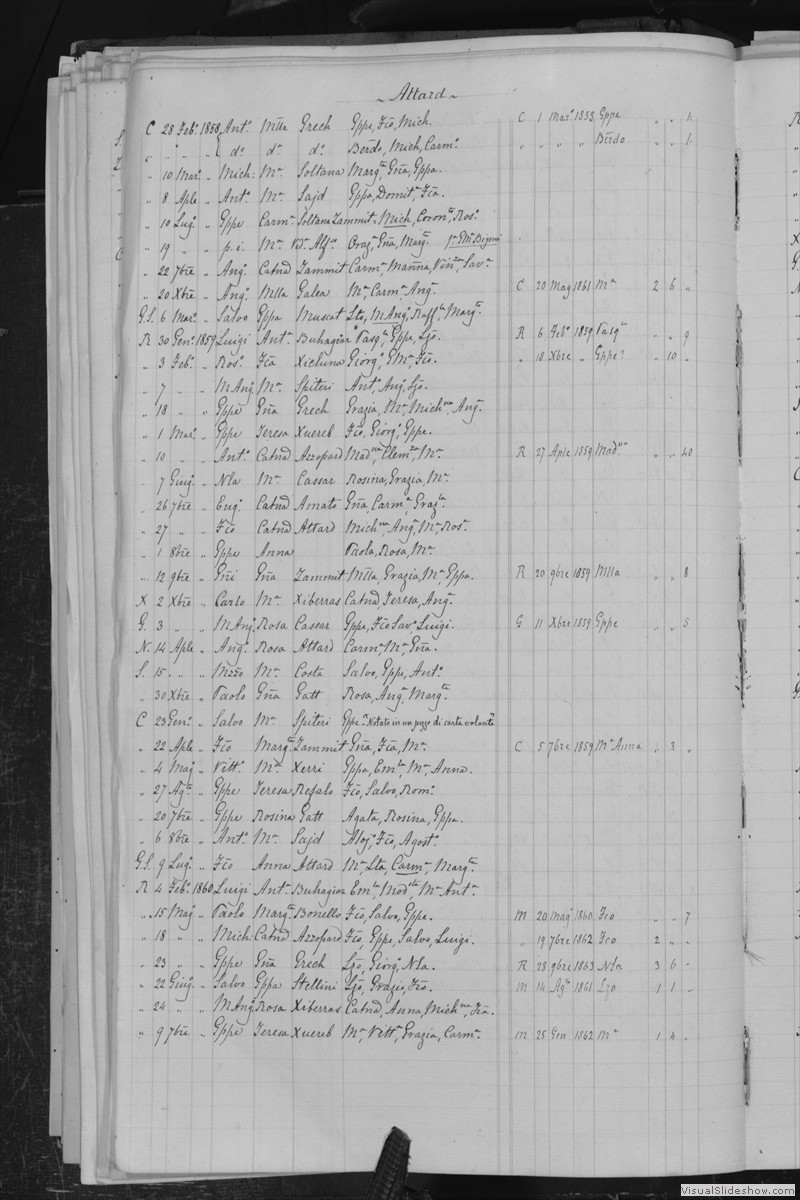 ~ Attard ~
C 28 Feb.° 1858 Ant.° Mlla Grech Gppe, Fco, Mich. C 1 Mar.° 1858 Gppe „ „ 1.
„ „ „ „ d.° d.° d.° Berdo, Mich, Carm.° „ „ „ „ Berdo „ „ 1.
„ 10 Mar.° „ Mich: M.ª Soltana Marg.ta Gña, Gppa.
„ 8 Aple „ Ant.° M.ª Sajd Gppa, Domit.ª, Fca.
„ 10 Lug.° „ Gppe Carm.ª Soltana Zammit Mich, Coron.ta, Ros.ª
„ 19 „ „ p.i. M.ª Graz.ª Gña, Marg.ta
„ 22 7bre „ Ang.° Catnã Zammit Carm.ª Marina, Vin.za, Sav.ª
„ 20 Xbre „ Ang.° Mlla Galea M.ª, Carm.ª, Ang.ª C 20 Mag 1861 M.ª 2 6 „
G.S. 6 Mar.° „ Salvo Gppa Muscat Lta, M Ang.ª, Raff.la, Marg.ta
R 30 Gen.° 1859 Luigi Ant.ª Buhagiar Pasq.le, Gppe, Lzo. R 6 Feb.° 1859 Pasq.le „ „ 9
„ 3 Feb.° „ Ros.° Fca Xicluna Giorg.°, GM.ª, Fco. „ 18 Xbre „ Gppe? „ 10 „
„ 7 „ „ M Ang. M.ª Spiteri Ant.°, Ang.°, Lzo.
„ 18 „ „ Gppe Gña Grech Grazia, M.ª, Mich.na, Ang.ª
„ 1 Mar.° „ Gppe Teresa Xuereb Fco, Giorg.°, Gppe.
„ 10 „ „ Ant.° Catnã Azzopard Mad.na, Clem.za, M.ª R 27 Aple 1859 Mad.na „ „ 40
„ 7 Giug.° „ Nla M.ª Cassar Rosina, Grazia, M.ª
„ 26 7bre „ Eug.° Catnã Amato Gña, Carm.ª, Graz.la
„ 27 „ „ Fco Catnã Attard Mich.na, Ang.ª, M.ª Ros.ª
„ 1 8bre „ Gppe Anna Paola, Rosa, M.ª
„ 12 9bre „ Gñi Gña Zammit Mlla, Grazia, M.ª, Gppa. R 20 9bre 1859 Mlla „ „ 8
X 2 Xbre „ Carlo M.ª Xiberras Catnã, Teresa, Ang.ª
G. 3 „ „ M Ang. Rosa Cassar Gppe, Fco Sav.°, Luigi. G 11 Xbre 1859 Gppe „ „ 8
N. 14 Aple „ Ang.° Rosa Attard Carm.ª, M.ª, Gña.
S. 15 „ „ Mzzo M.ª Costa Salvo, Gppe, Ant.°
„ 30 Xbre „ Paolo Gña Gatt Rosa, Ang.ª, Marg.ta
C 23 Gen.° „ Salvo M.ª Spiteri Gppe. Notato in un pezzo di carta volante
„ 22 Aple „ Fco Marg.ta Zammit Gña, Fca, M.ª C 5 7bre 1859 M.ª Anna „ 3 „
„ 4 Mag „ Vitt.° M.ª Xerri Gppa, Em.la, M.ª Anna.
„ 27 Ag.to „ Gppe Teresa Refalo Fco, Salvo, Rom.°
„ 20 7bre „ Gppe Rosina Gatt Agata, Rosina, Gppa.
„ 6 8bre „ Ant.° M.ª Sajd Aloj.°, Fco, Agost.°
G.S. 9 Lug.° „ Fco Anna Attard M.ª, Lta, Carm.ª, Marg.ta
R 4 Feb.° 1860 Luigi Ant.ª Buhagiar Em.la, Mod.ta, M.ª Ant.ª
„ 15 Mag „ Paolo Marg.ta Bonello Fco, Salvo, Gppe. M 20 Mag.° 1860 Fco „ „ 7
„ 18 „ „ Mich Catnã Azzopard Fco, Gppe, Salvo, Luigi. „ 19 7bre 1862 Fco 2 „ „
„ 23 „ „ Gppe Gña Grech Lzo, Giorg.°, Nla. R 28 9bre 1863 Nla 3 6 „
„ 22 Giug.° „ Salvo Gppa Stellini Lzo, Grazio, Fco. M 14 Ag.to 1861 Lzo 1 1 „
„ 24 „ „ M Ang. Rosa Xiberras Catnã, Anna, Mich.na, Fca.
„ 9 7bre „ Gppe Teresa Xuereb M.ª, Vitt.ª, Grazia, Carm.ª M 25 Gen 1862 M.ª 1 4 „
VisualSlideshow.com